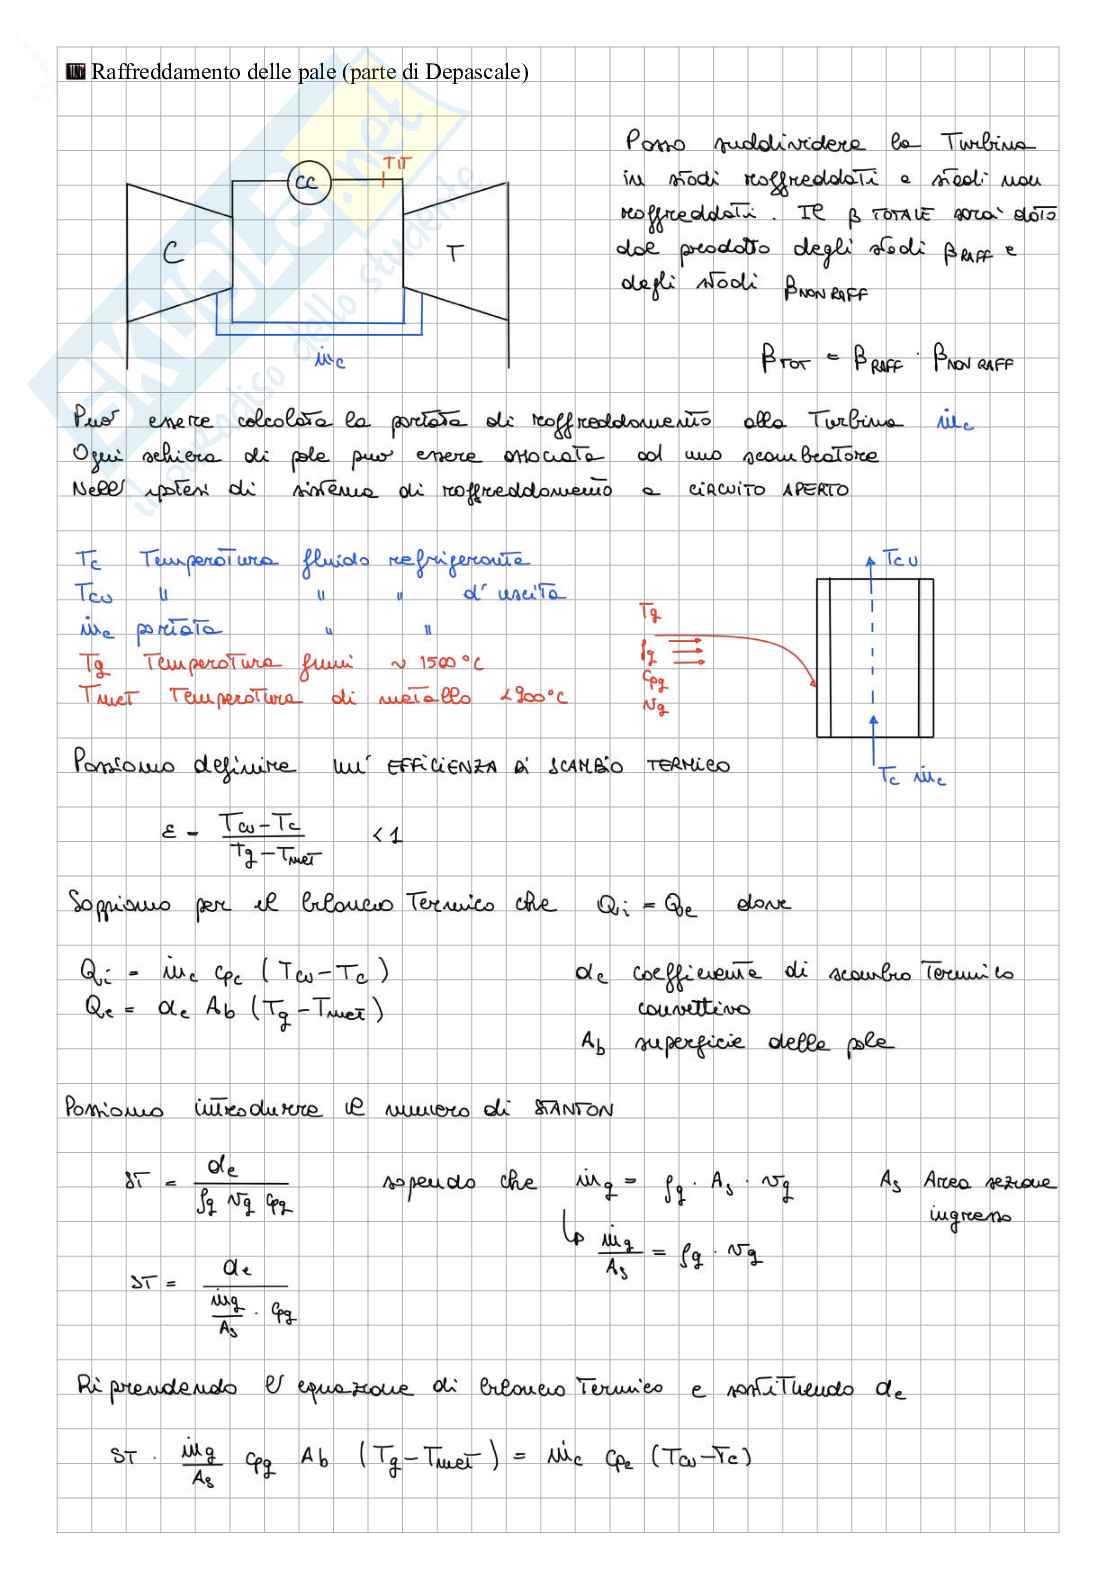 Raffreddamento delle pale (parte di Depascale)
SKUOLA.net
il paradiso dello studente
CC
TIT
C
T
ṁc
Posso suddividere la Turbina
in stadi raffreddati e stadi non
raffreddati. Il β TOTALE sarà dato
dal prodotto degli stadi βRAFF e
degli stadi βNON RAFF
βTOT = βRAFF · βNON RAFF
Può essere calcolata la portata di raffreddamento alla Turbina ṁc
Ogni schiera di pale può essere associata ad uno scambiatore
Nell'ipotesi di sistema di raffreddamento a CIRCUITO APERTO
Tc Temperatura fluido refrigerante
Tcu " " " d'uscita
ṁc portata " "
Tg Temperatura fumi ~ 1500°C
Tmet Temperatura di metallo <900°C
Tcu
Tg
ρg
Cpg
Vg
Tc ṁc
Possiamo definire un' EFFICIENZA DI SCAMBIO TERMICO
ε = (Tcu - Tc) / (Tg - Tmet) < 1
Sappiamo per il bilancio Termico che Qi = Qe dove
Qi = ṁc cpc (Tcu - Tc)
Qe = αe Ab (Tg - Tmet)
αe coefficiente di scambio Termico
convettivo
Ab superficie delle pale
Possiamo introdurre il numero di STANTON
ST = αe / (ρg vg cpg) sapendo che ṁg = ρg · As · vg As Area sezione
ingresso
↳ ṁg / As = ρg · vg
ST = αe / (ṁg / As · cpg)
Riprendendo l'equazione di bilancio Termico e sostituendo αe
ST · ṁg / As cpg Ab (Tg - Tmet) = ṁc cpc (Tcu - Tc)